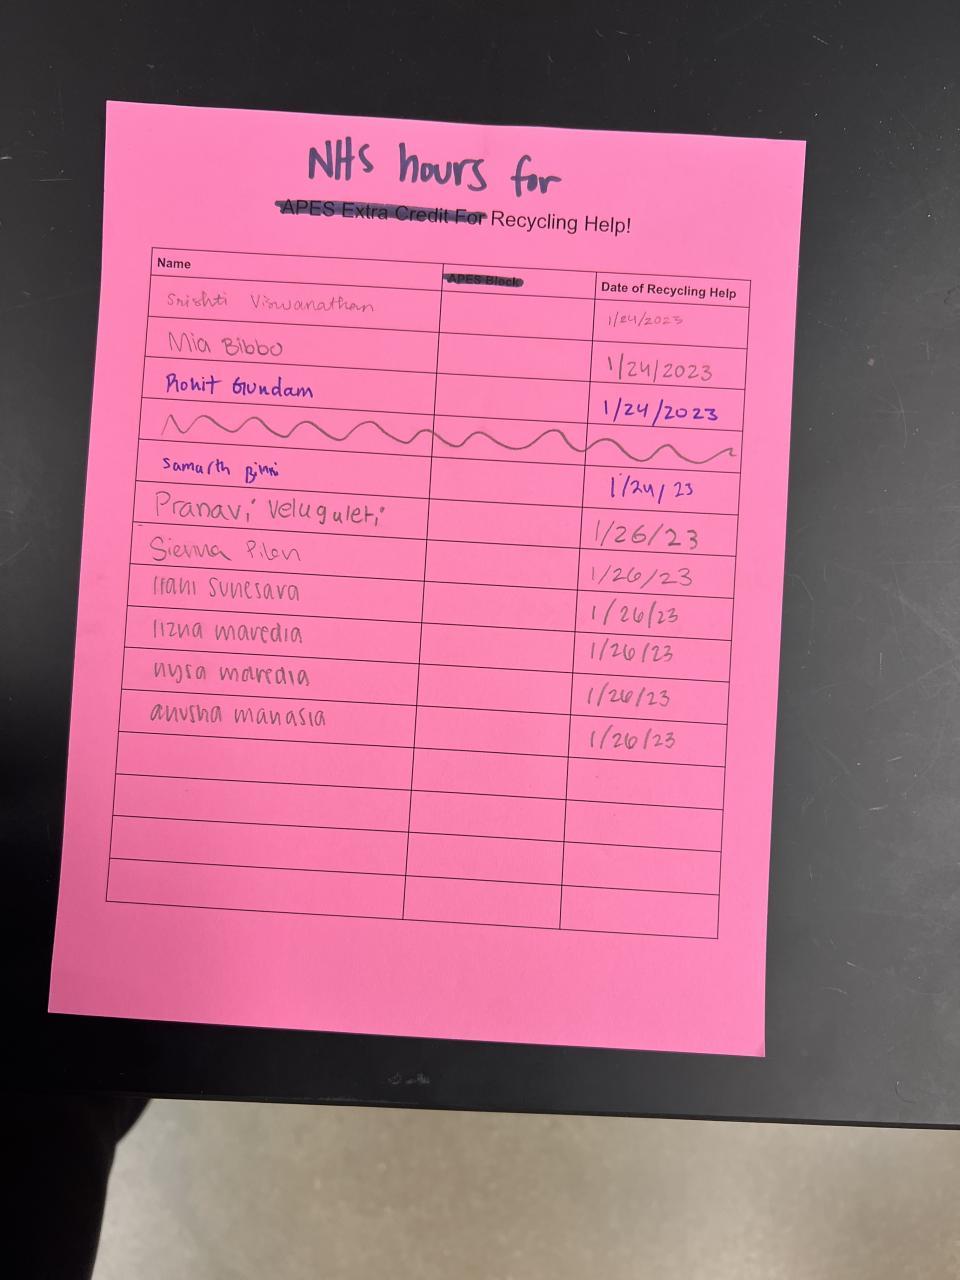 NHS hours for
APES Extra Credit For Recycling Help!
Name APES Block Date of Recycling Help
Srishti Viswanathan 1/24/2023
Mia Bibbo 1/24/2023
Rohit Gundam 1/24/2023
Samarth 1/24/23
Pranavi Veluguleti 1/26/23
Sienna 1/26/23
Irani Sunesara 1/26/23
lizna maredia 1/26/23
nysa maredia 1/26/23
anusha manasia 1/26/23